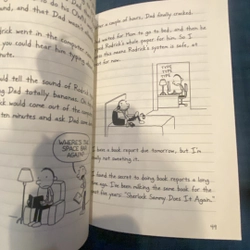 and that mean
went in the computer
you could hear him typing
could tell the sound of
Dad totally bananas.
would come out of the
ten minutes and ask Dad some
WHERE'S THE
SPACE BAR
AGAIN?
a couple of hours, Dad finally cracked.
waited for them to go to bed, and then
Rodrick's whole paper for him. So I
this means Rodrick's system is safe, at
for now.
a book report due tomorrow, but I'm
really not sweating it.
found the secret to doing book reports a long
ago. I've been milking the same book for the
years: "Sherlock Sammy Does It Again."
99